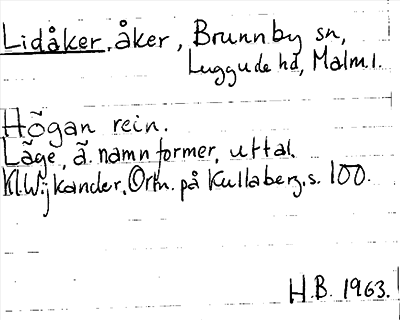 Lidåker, åker, Brunnby sn,
Luggude hd, Malm.l.
Högan rein.
Läge, ä. namnformer, uttal.
Kl.Wijkander, Ortn. på Kullaberg, s. 100.
H.B. 1963.